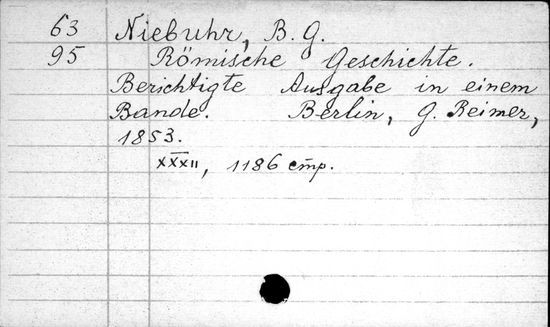 63 Niebuhr, B. G.
95 Römische Geschichte.
Berichtigte Ausgabe in einem
Bande. Berlin, G. Reimer,
1853.
XXXII, 1186 стр.